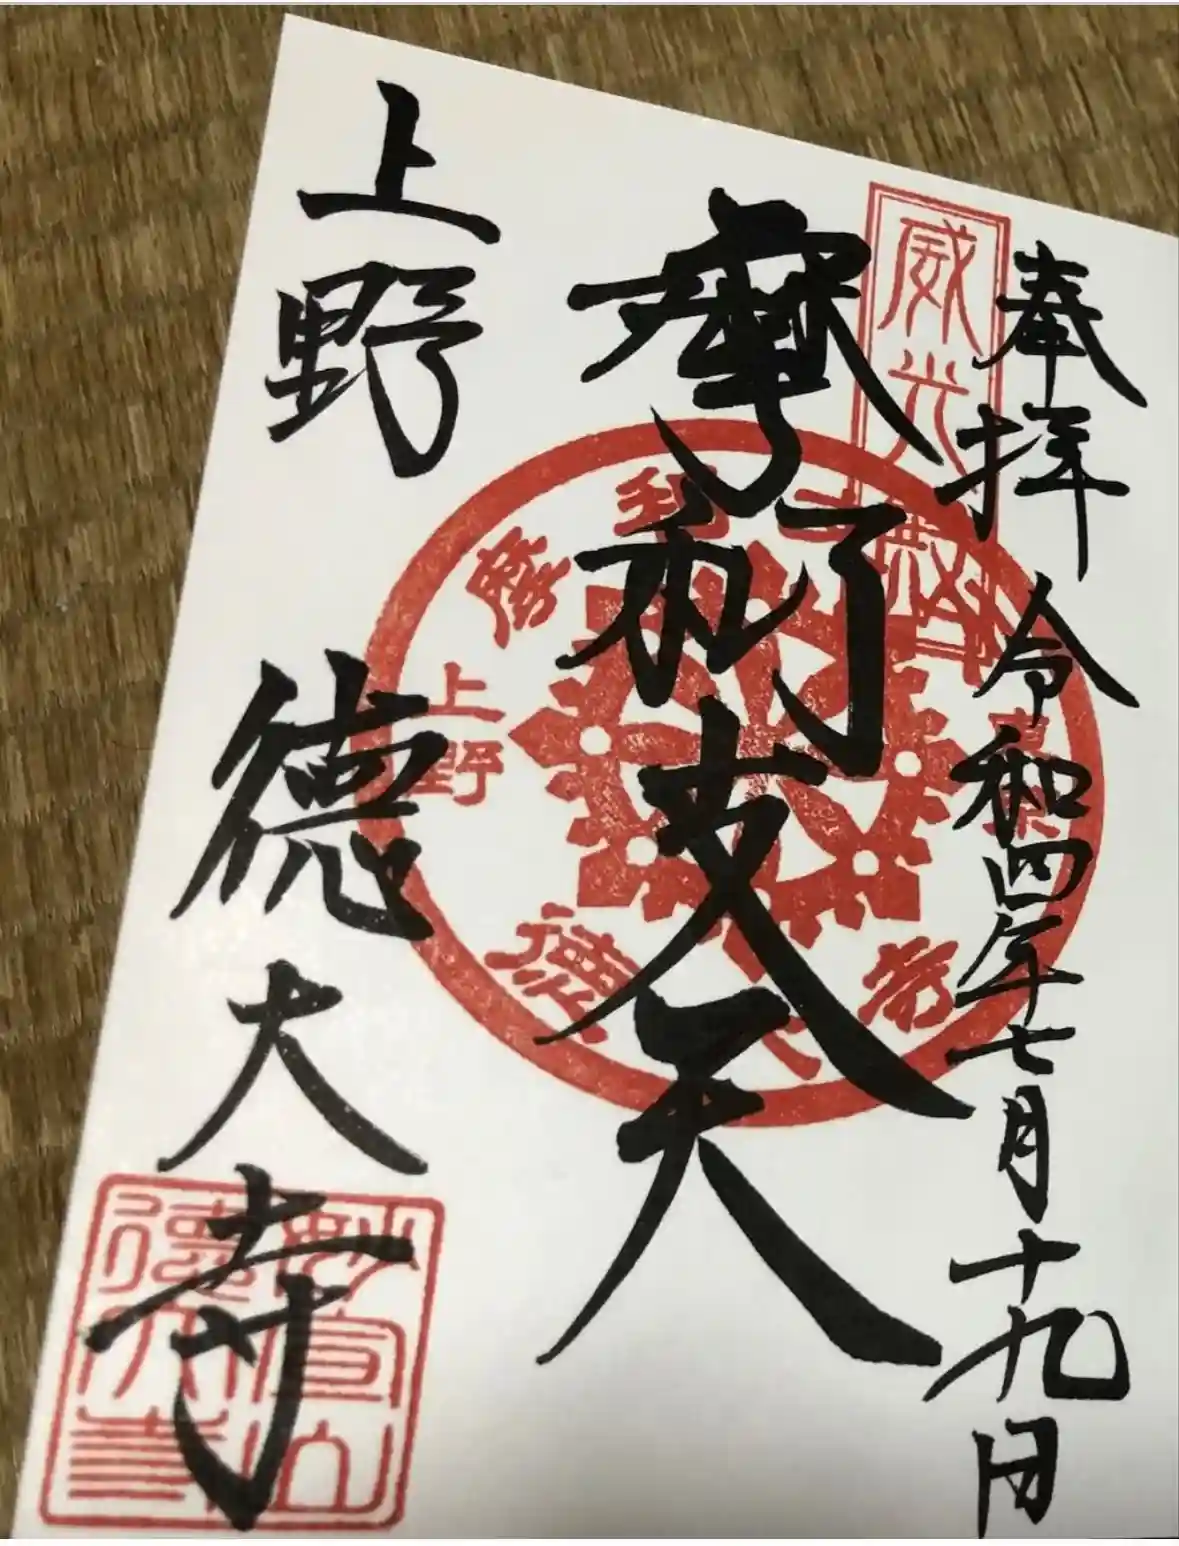 奉拝 令和四年七月十九日
威光
摩利支天
摩利支天
上野
東京
徳大寺
上野 徳大寺
妙宣山
徳大寺